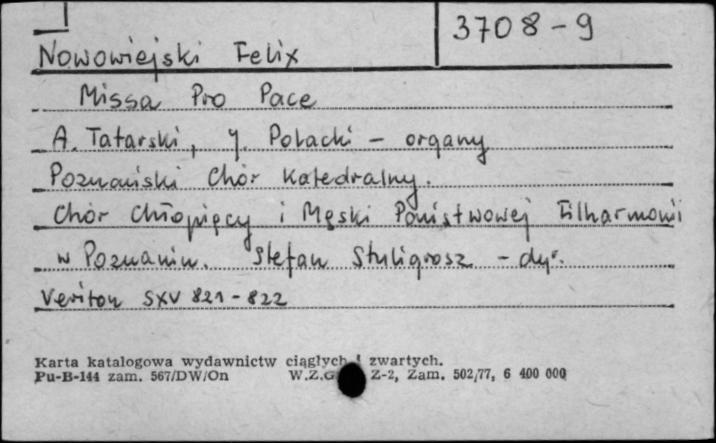 3708-9
Nowowiejski Felix
Missa Pro Pace
A. Tatarski, J. Polacki - organy
Poznański Chór Katedralny.
Chór Chłopięcy i Męski Państwowej Filharmonii
w Poznaniu. Stefan Stuligrosz - dyr.
Veriton SXV 821-822
Karta katalogowa wydawnictw ciągłych i zwartych.
Pu-B-144 zam. 567/DW/On W.Z.G Z-2, Zam. 502/77, 6 400 000